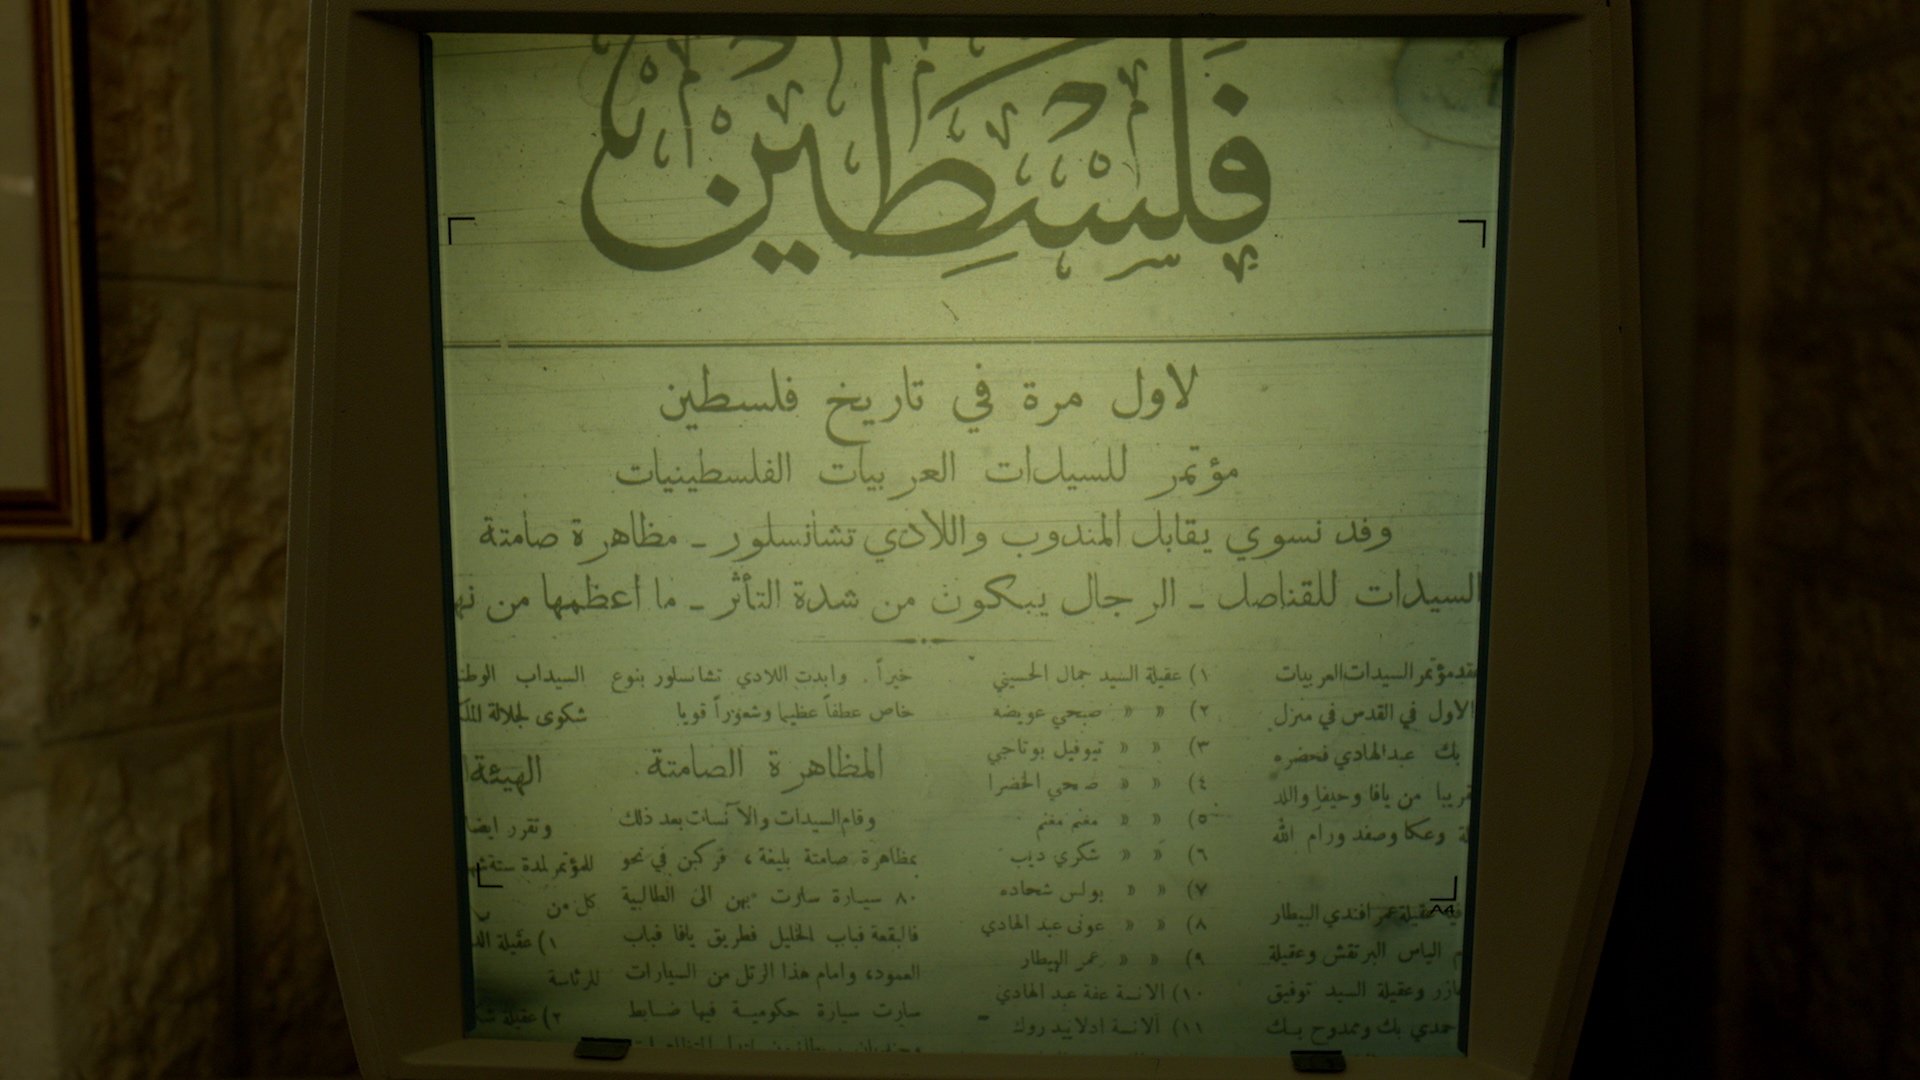 فلسطين
لاول مرة في تاريخ فلسطين
مؤتمر للسيدات العربيات الفلسطينيات
وفد نسوي يقابل المندوب واللادي تشانسلور ـ مظاهرة صامتة
السيدات للقناصل ـ الرجال يبكون من شدة التأثر ـ ما اعظمها من
مؤتمر السيدات العربيات
الاول في القدس في منزل
بك عبدالهادي فحضره
من يافا وحيفا واللد
وعكا وصفد ورام الله
عقيلة عمر افندي البيطار
الياس البرتقش وعقيلة
وعقيلة السيد توفيق
حمدي بك وممدوح بك
١) عقيلة السيد جمال الحسيني
٢) » » صبحي عويضه
٣) » » تيوفيل بوتاجي
٤) » » صبحي الخضرا
٥) » » مغنم مغنم
٦) » » شكري ديب
٧) » » بولس شحاده
٨) » » عونى عبد الهادي
٩) » » عمر البيطار
١٠) الانسة عفة عبد الهادي
١١) الانسة ادلاييد روك
خيراً . وابدت اللادي تشانسلور بنوع
خاص عطفاً عظيما وشعوراً قويا
المظاهرة الصامتة
وقام السيدات والآنسات بعد ذلك
بمظاهرة صامتة بليغة ، فركبن في نحو
٨٠ سيارة سارت بهن الى الطالبية
فالبقعة فباب الخليل فطريق يافا فباب
العمود، وامام هذا الرتل من السيارات
سارت سيارة حكومية فيها ضابط
السيدات
شكوى لجلالة
الهيئة
وتقرر ايضا
للمؤتمر لمدة ستة
كل من
١) عقيلة
للرئاسة
٢) عقيلة
A4